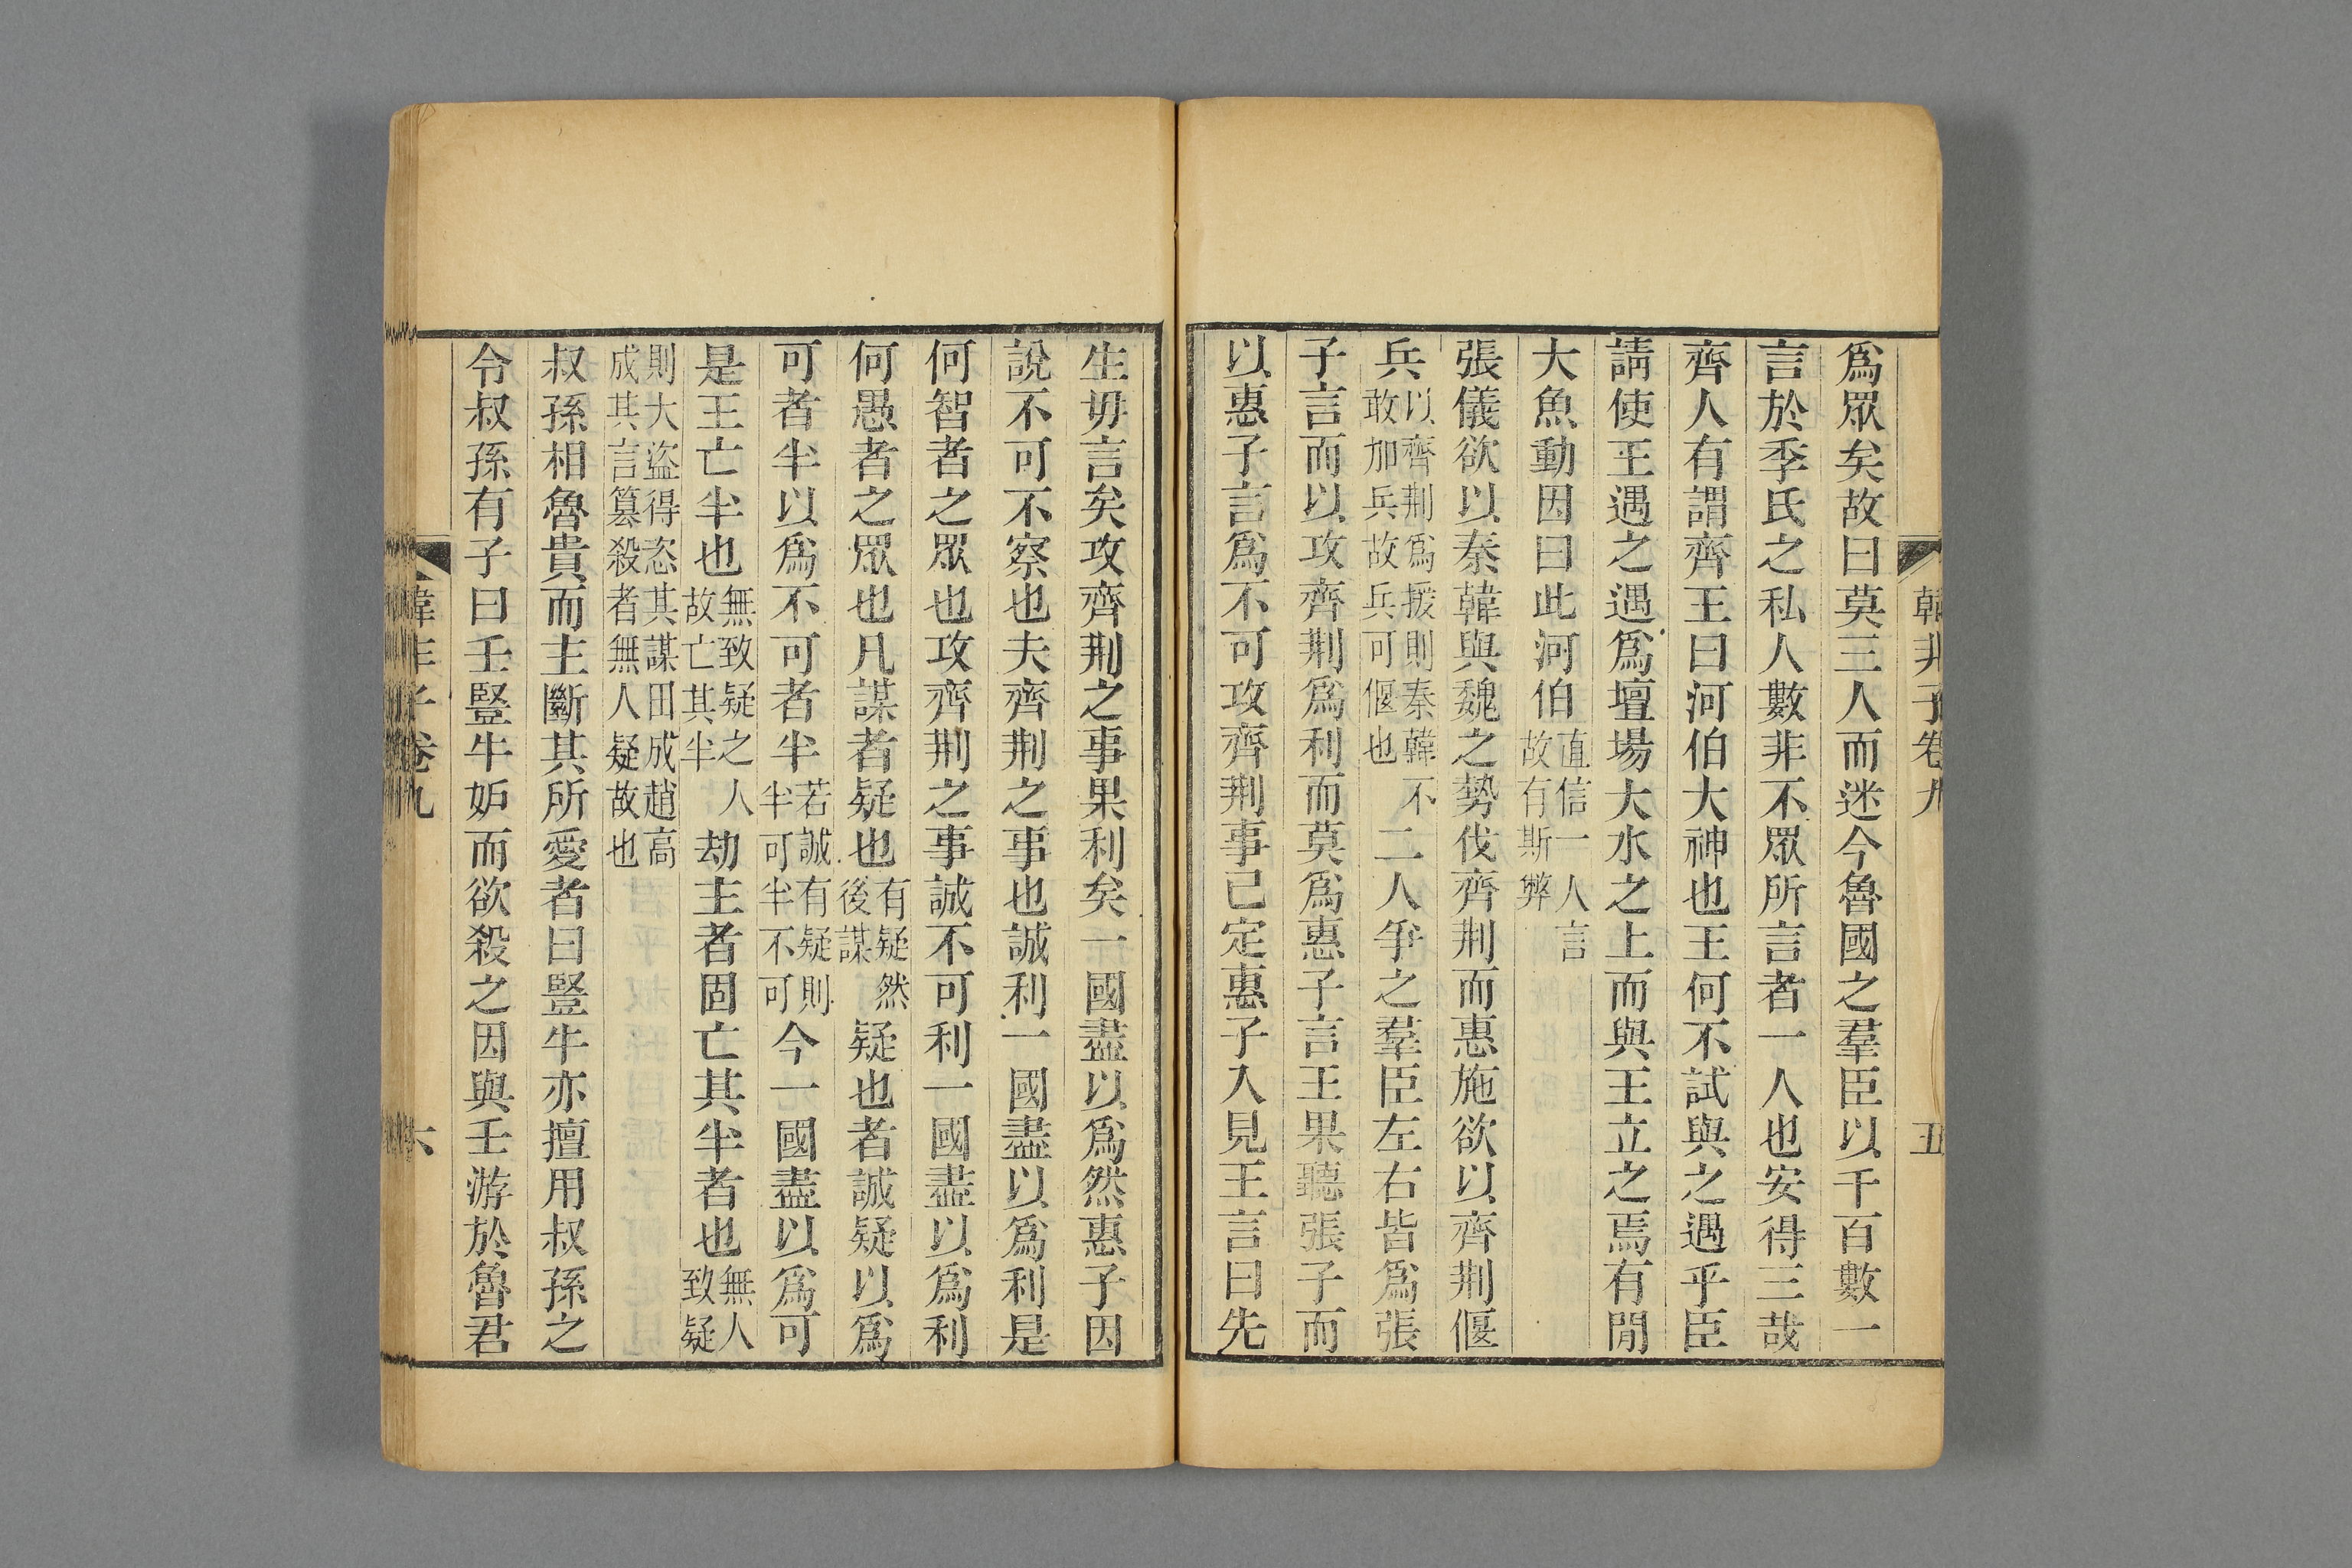 韓非子卷九
五
爲眾矣故曰莫三人而迷今魯國之羣臣以千百數一
言於季氏之私人數非不眾所言者一人也安得三哉
齊人有謂齊王曰河伯大神也王何不試與之遇乎臣
請使王遇之遇爲壇場大水之上而與王立之焉有閒
大魚動因曰此河伯直信一人言故有斯弊
張儀欲以秦韓與魏之勢伐齊荆而惠施欲以齊荆偃
兵以齊荆爲援則秦韓不敢加兵故兵可偃也二人爭之羣臣左右皆爲張
子言而以攻齊荆爲利而莫爲惠子言王果聽張子而
以惠子言爲不可攻齊荆事已定惠子入見王言曰先
生毋言矣攻齊荆之事果利矣一國盡以爲然惠子因
說不可不察也夫齊荆之事也誠利一國盡以爲利是
何智者之眾也攻齊荆之事誠不可利一國盡以爲利
何愚者之眾也凡謀者疑也有疑然後謀疑也者誠疑以爲
可者半以爲不可者半若誠有疑則半可半不可今一國盡以爲可
是王亡半也無致疑之人故亡其半劫主者固亡其半者也無人致疑
則大盜得恣其謀田成趙高成其言篡殺者無人疑故也
叔孫相魯貴而主斷其所愛者曰豎牛亦擅用叔孫之
令叔孫有子曰壬豎牛妒而欲殺之因與壬游於魯君
韓非子卷九
六